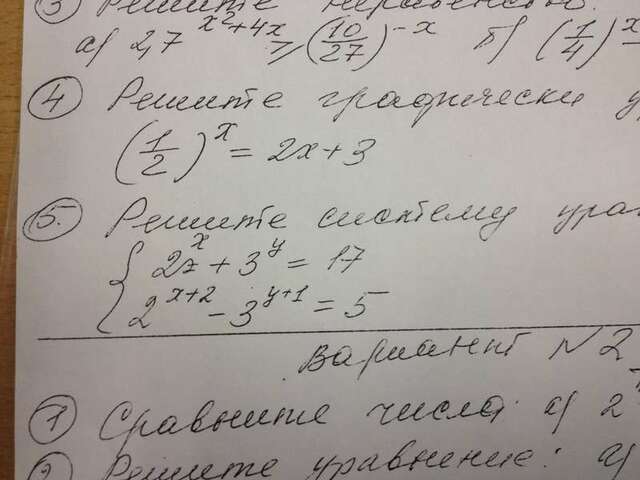 3 Решите неравенство:
а) 2,7^{x²+4x} ≥ (10/27)^{-x} б) (1/4)^x
4 Решите графически у
(1/2)^x = 2x+3
5. Решите систему урав
{ 2^x + 3^y = 17
2^{x+2} - 3^{y+1} = 5
Вариант N2
1 Сравните числа: а) 2
2 Решите уравнение: а)